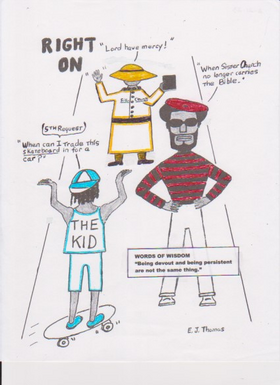 RIGHT
ON
"Lord have mercy!"
"When Sister Church
no longer carries
the Bible."
Church
(5TH Request)
"When can I trade this
skateboard in for a
car?"
THE
KID
WORDS OF WISDOM
"Being devout and being persistent
are not the same thing."
E.J. Thomas